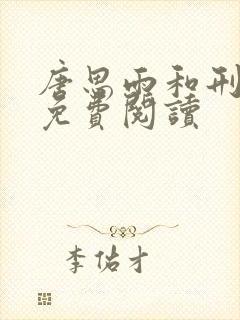 唐思雨和刑
免費閱讀
李佑才